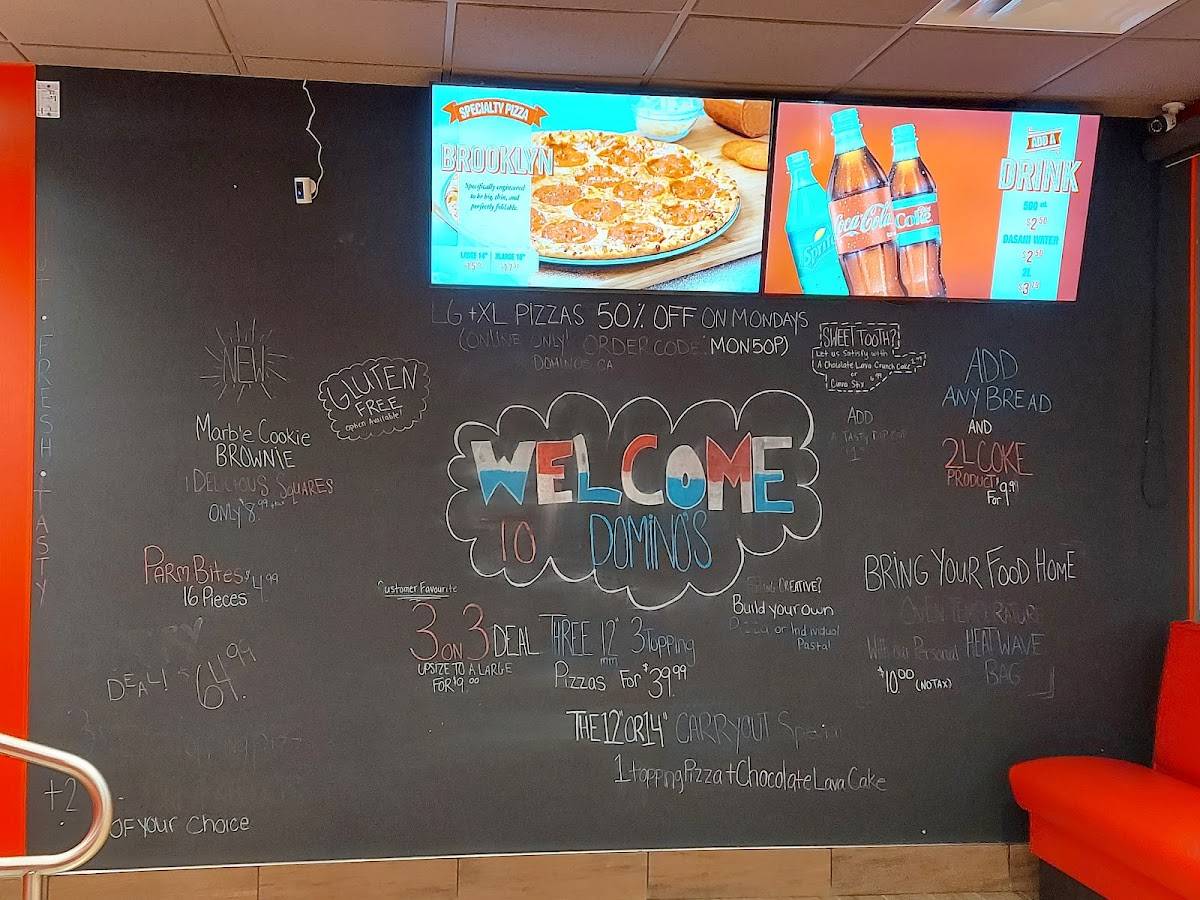 SPECIALTY PIZZA
BROOKLYN
Specifically engineered
to be big, thin, and
perfectly foldable.
LARGE 14" XLARGE 16"
Sprite
Coca-Cola
Coke
ADD A
DRINK
500 mL
$2.50
DASANI WATER
$2.50
2L
LG + XL PIZZAS 50% OFF ON MONDAYS
(ONLINE ONLY! ORDER CODE: MON50P)
DOMINOS.CA
FRESH • TASTY
NEW
Marble Cookie
BROWNIE
DELICIOUS SQUARES
ONLY $8.99
GLUTEN
FREE
option Available!
SWEET TOOTH?
Let us Satisfy with
A Chocolate Lava Crunch Cake
or
Cinna Stix
ADD
A TASTY DIP CUP
ADD
ANY BREAD
AND
2L COKE
PRODUCT
For $9.99
WELCOME
TO DOMINO'S
PARM BITES $4.99
16 Pieces
DEAL! $64.99
Customer Favourite
3 ON 3 DEAL THREE 12" 3 Topping
UPSIZE TO A LARGE
Pizzas For $39.99
CREATIVE?
Build your own
Pizza or Individual
Pasta!
BRING YOUR FOOD HOME
OVEN TEMPERATURE
With our Personal HEATWAVE
BAG
$10.00 (NO TAX)
THE 12" OR 14" CARRYOUT Special
1 topping Pizza + Chocolate Lava Cake
+2
OF YOUR CHOICE